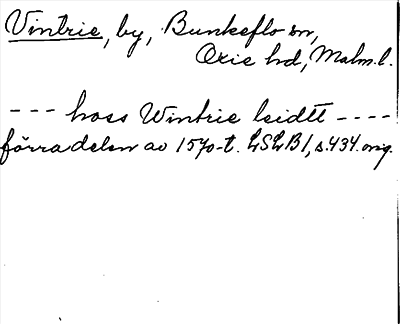 Vintrie, by, Bunkeflo sn,
Oxie hd, Malm.l.
--- hoss Wintrie leidtt ----
förra delen av 1570-t. LSLB1, s.434. orig.